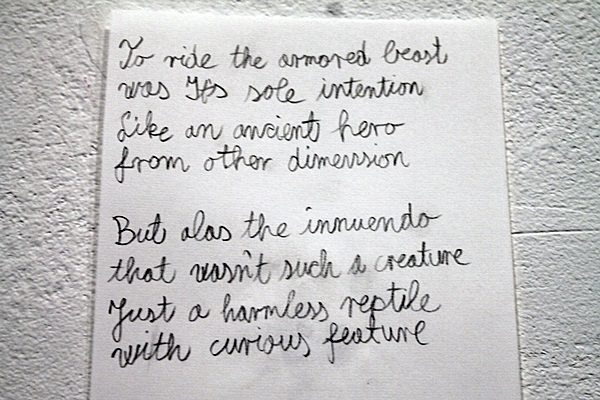 To ride the armored beast
was Its sole intention
Like an ancient hero
from other dimension
But alas the innuendo
that wasn't such a creature
Just a harmless reptile
with curious feature